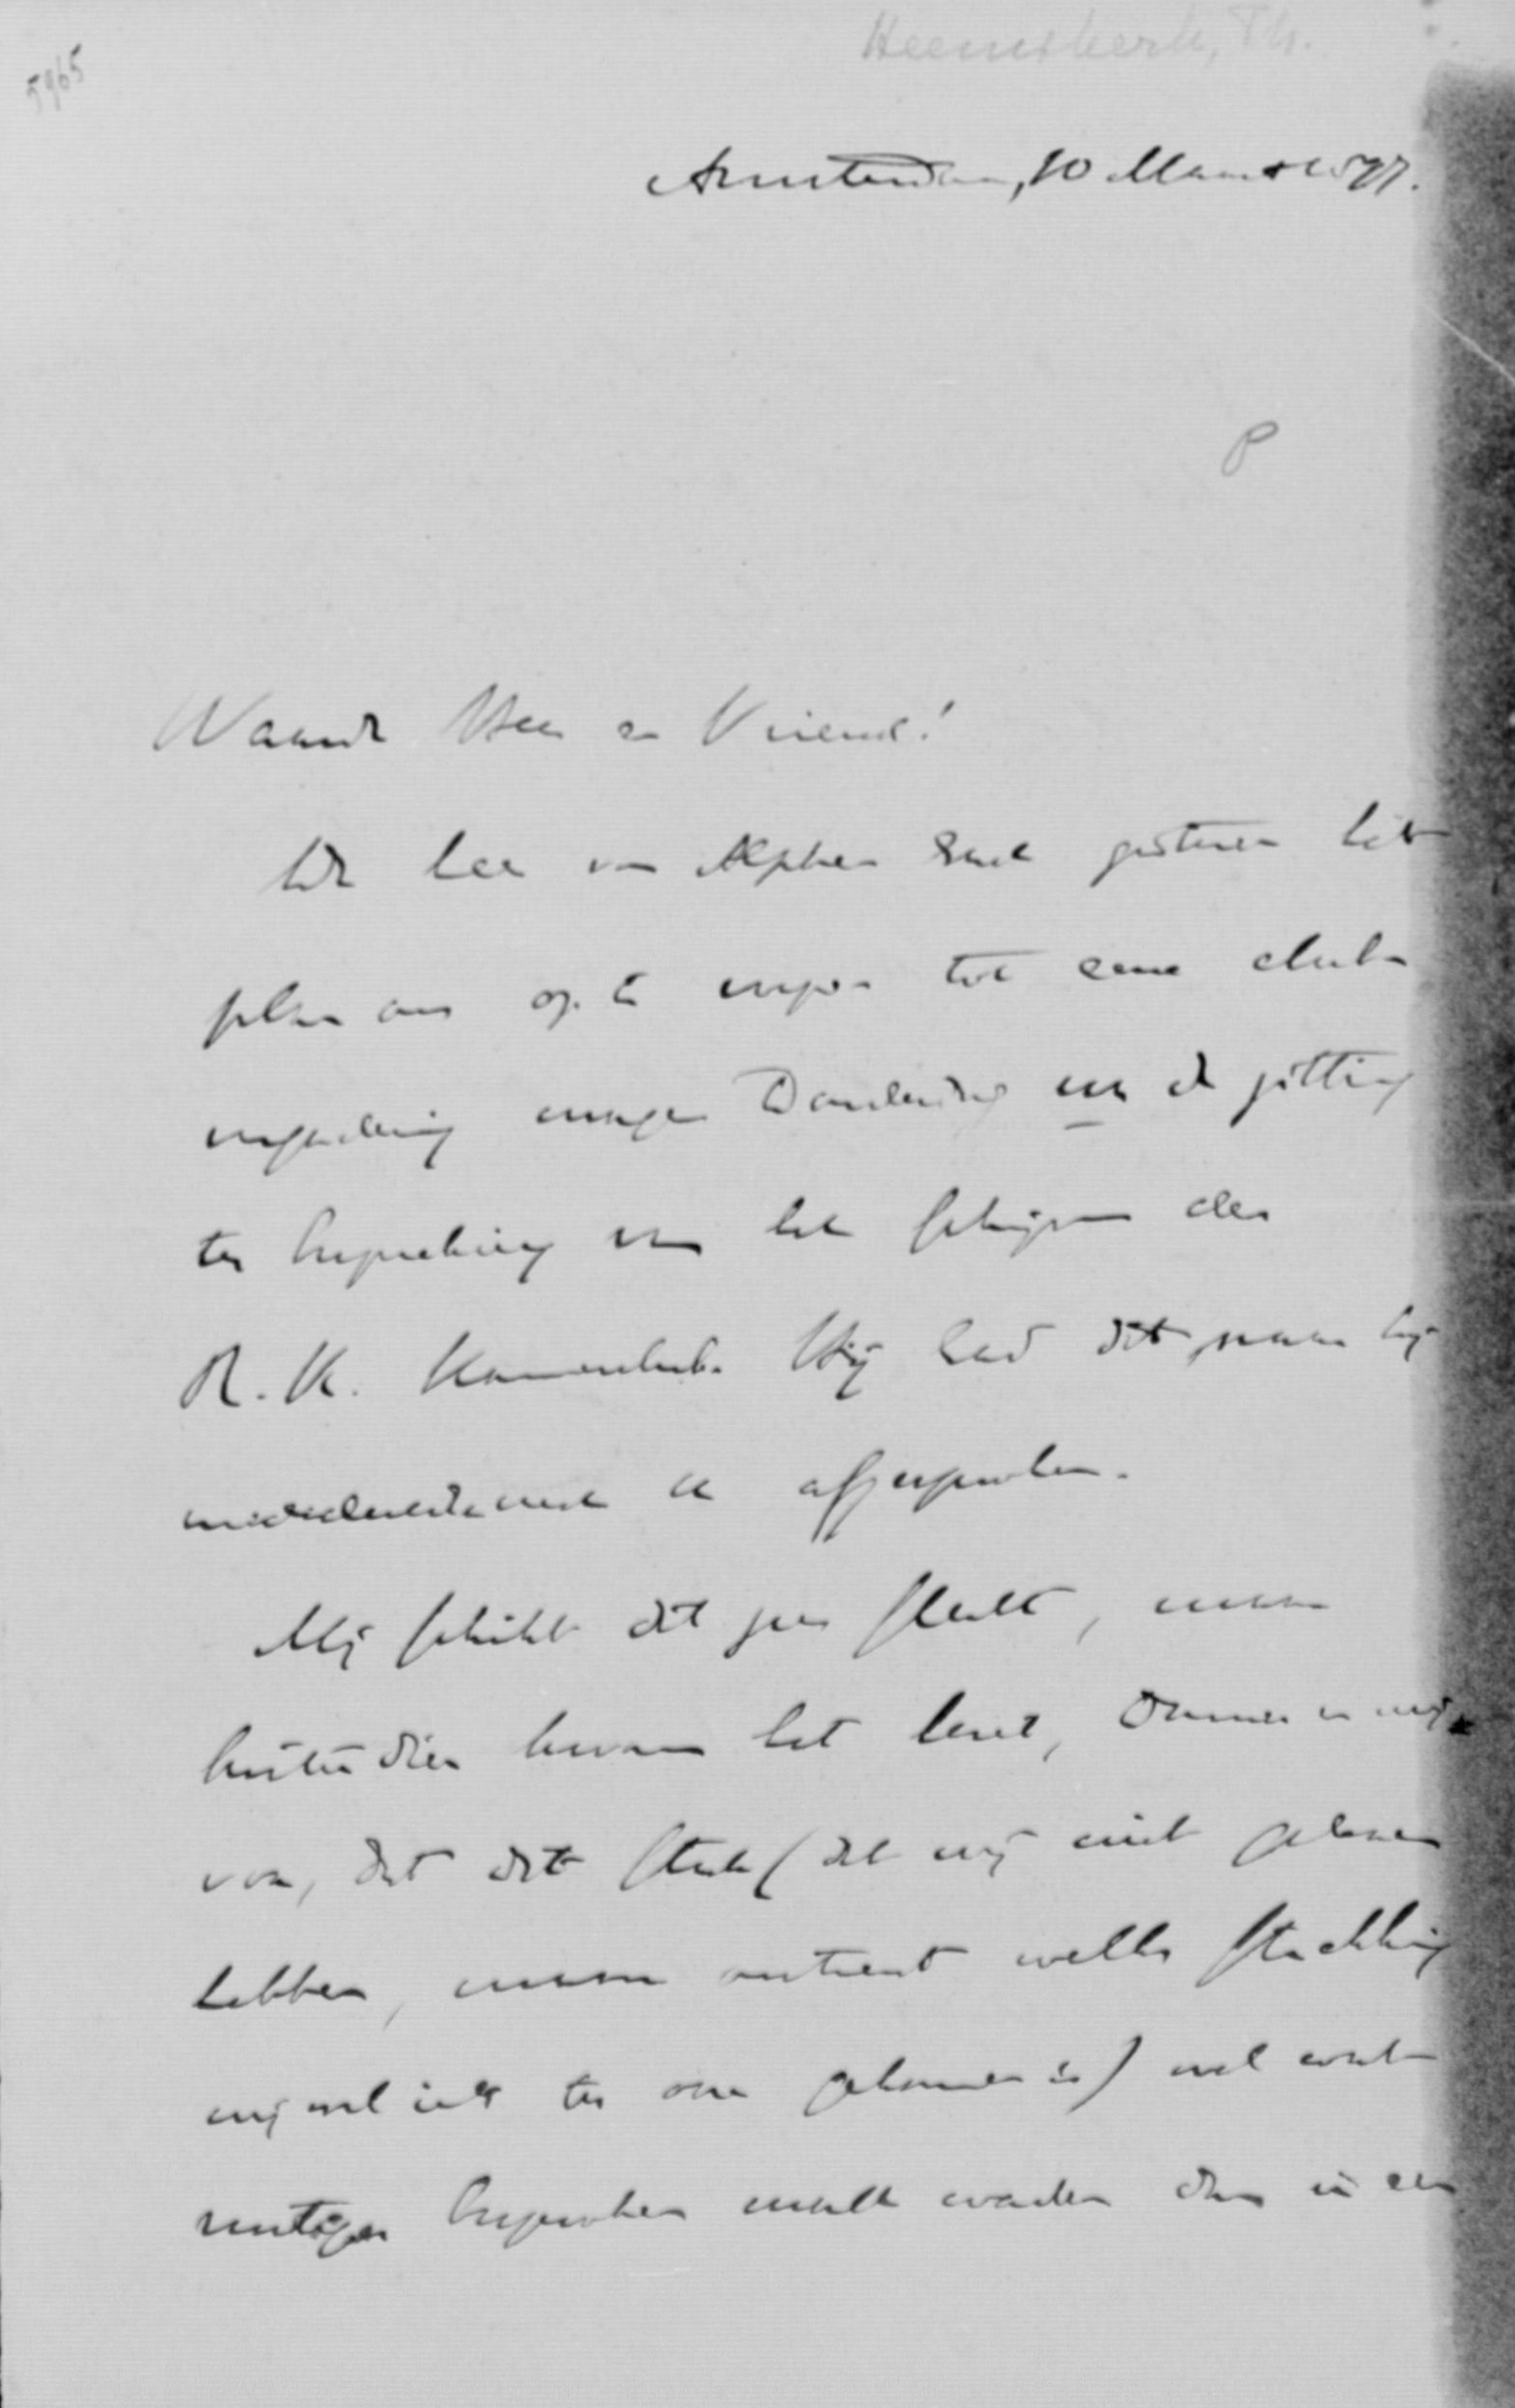 5965
Heemskerk, Th.
Amsterdam, 10 Maart 1897.
P
Waarde Heer en Vriend!
De heer van Alphen had gisteren het
plan ons op te roepen tot eene club-
vergadering morgen Donderdag na de zitting
ter bespreking van het schrijven der
R. K. Kamerclub. Hij had dit, naar hij
mededeelde met U afgesproken.
Mij schikt dit zeer slecht, maar
buitendien kwam het Lent, Donner en mij
voor, dat dit stuk (dat wij niet gelezen
hebben, maar omtrent welks strekking
mij wel iets ter oore gekomen is) wel wat
rustiger besproken mocht worden dan in een